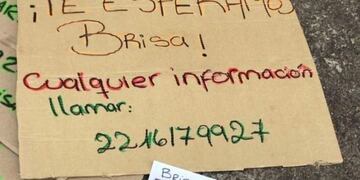 ¡TE ESPERAMO
Brisa!
Cualquier información
llamar:
2216179927
Bris